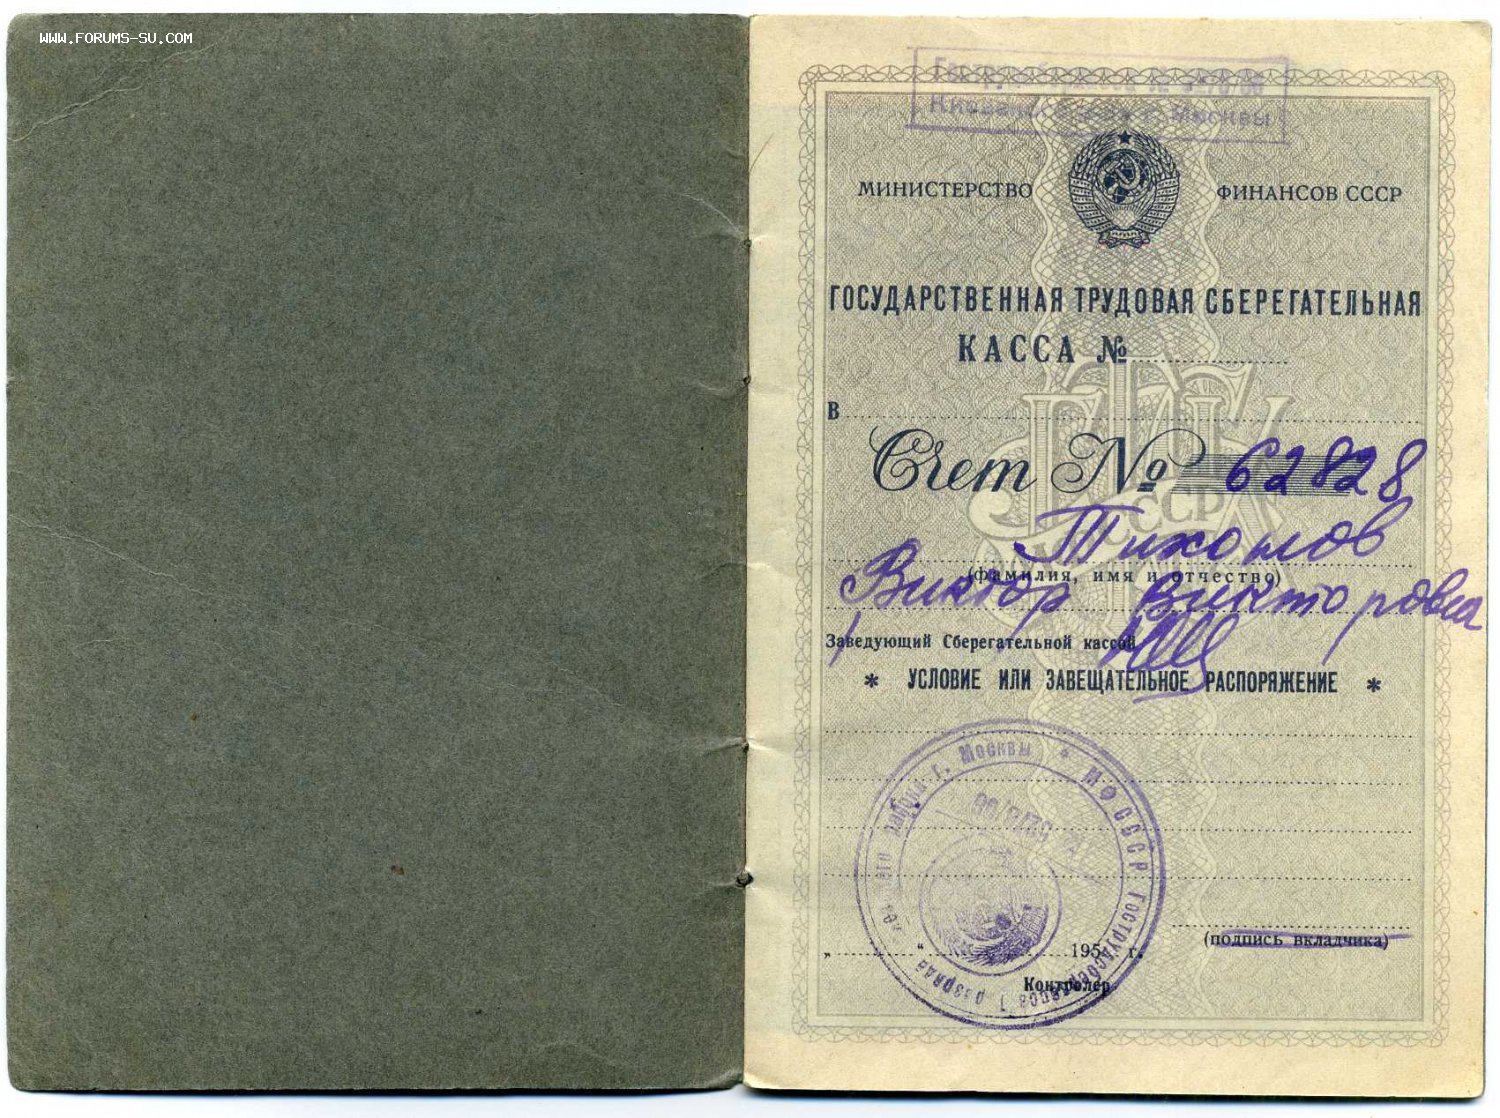 WWW.FORUMS-SU.COM
г. Москвы
МИНИСТЕРСТВО ФИНАНСОВ СССР
ГОСУДАРСТВЕННАЯ ТРУДОВАЯ СБЕРЕГАТЕЛЬНАЯ
КАССА №
В
Счет № 62828
Тихонов
(фамилия, имя и отчество)
Виктор Викторович
Заведующий Сберегательной кассой
* УСЛОВИЕ ИЛИ ЗАВЕЩАТЕЛЬНОЕ РАСПОРЯЖЕНИЕ *
г. Москвы * МФ СССР Гострудсберкасса 1 разряда
5278/06
(подпись вкладчика)
„ “ 195 г.
Контролер